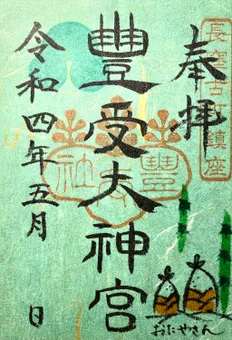 長窪古町鎮座
奉拝
豊受大神宮
豊受社
令和四年五月 日
おにやさん